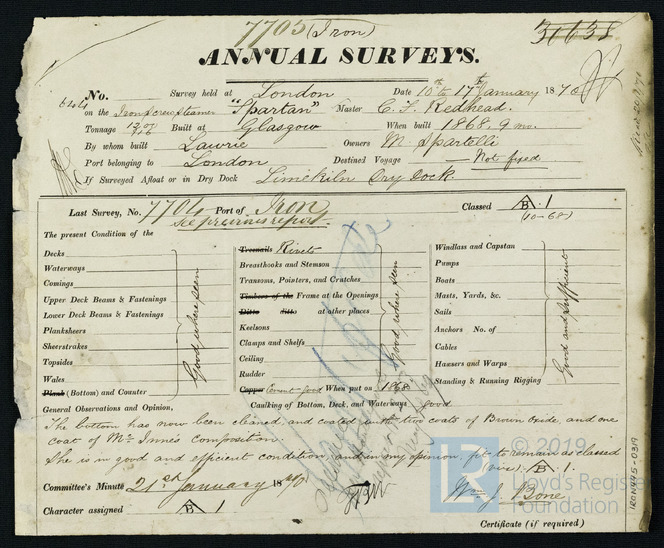 7703 (Iron)
31638
ANNUAL SURVEYS.
No. Survey held at London Date 10th 17th January 1870
on the Iron Screw Steamer "Spartan" Master C. F. Redhead.
Tonnage Built at Glasgow When built 1868, 9 mo.
By whom built Lawrie Owners M. Spartelli
Port belonging to London Destined Voyage Not fixed
If Surveyed Afloat or in Dry Dock Limekiln Dry Dock.
Last Survey, No. 7704 Port of Iron Classed B. 1
See previous report. (10-68)
The present Condition of the
Decks
Waterways
Comings
Upper Deck Beams & Fastenings
Lower Deck Beams & Fastenings
Planksheers
Sheerstrakes
Topsides
Wales
Plank (Bottom) and Counter
Good where seen
Treenails Rivets
Breasthooks and Stemson
Transoms, Pointers, and Crutches
Timbers of the Frame at the Openings
Ditto ditto at other places
Keelsons
Clamps and Shelfs
Ceiling
Rudder
Copper Cement good When put on 1868
Good where seen
Windlass and Capstan
Pumps
Boats
Masts, Yards, &c.
Sails
Anchors No. of
Cables
Hawsers and Warps
Standing & Running Rigging
Good and Sufficient
Caulking of Bottom, Deck, and Waterways good
General Observations and Opinion,
The bottom has now been cleaned, and coated with two coats of Brown Oxide, and one
coat of Mc Innes Composition.
She is in good and efficient condition, and in my opinion, fit to remain as classed
B 1.
Committee's Minute 21st January 1870
Wm. J. Bone
Character assigned B 1
Certificate (if required)
IRON445-0319
© 2019
LR
Lloyd's Register
Foundation